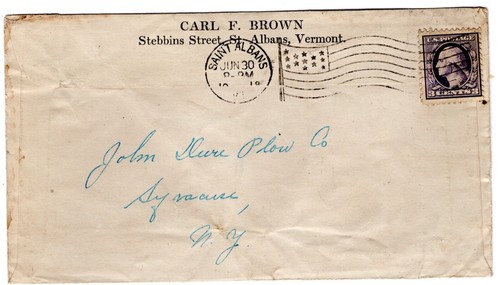 CARL F. BROWN
Stebbins Street, St. Albans, Vermont.
SAINT ALBANS
JUN 30
8-PM
VT.
U.S. POSTAGE
3 CENTS 3
John Deere Plow Co
Syracuse,
N. Y.